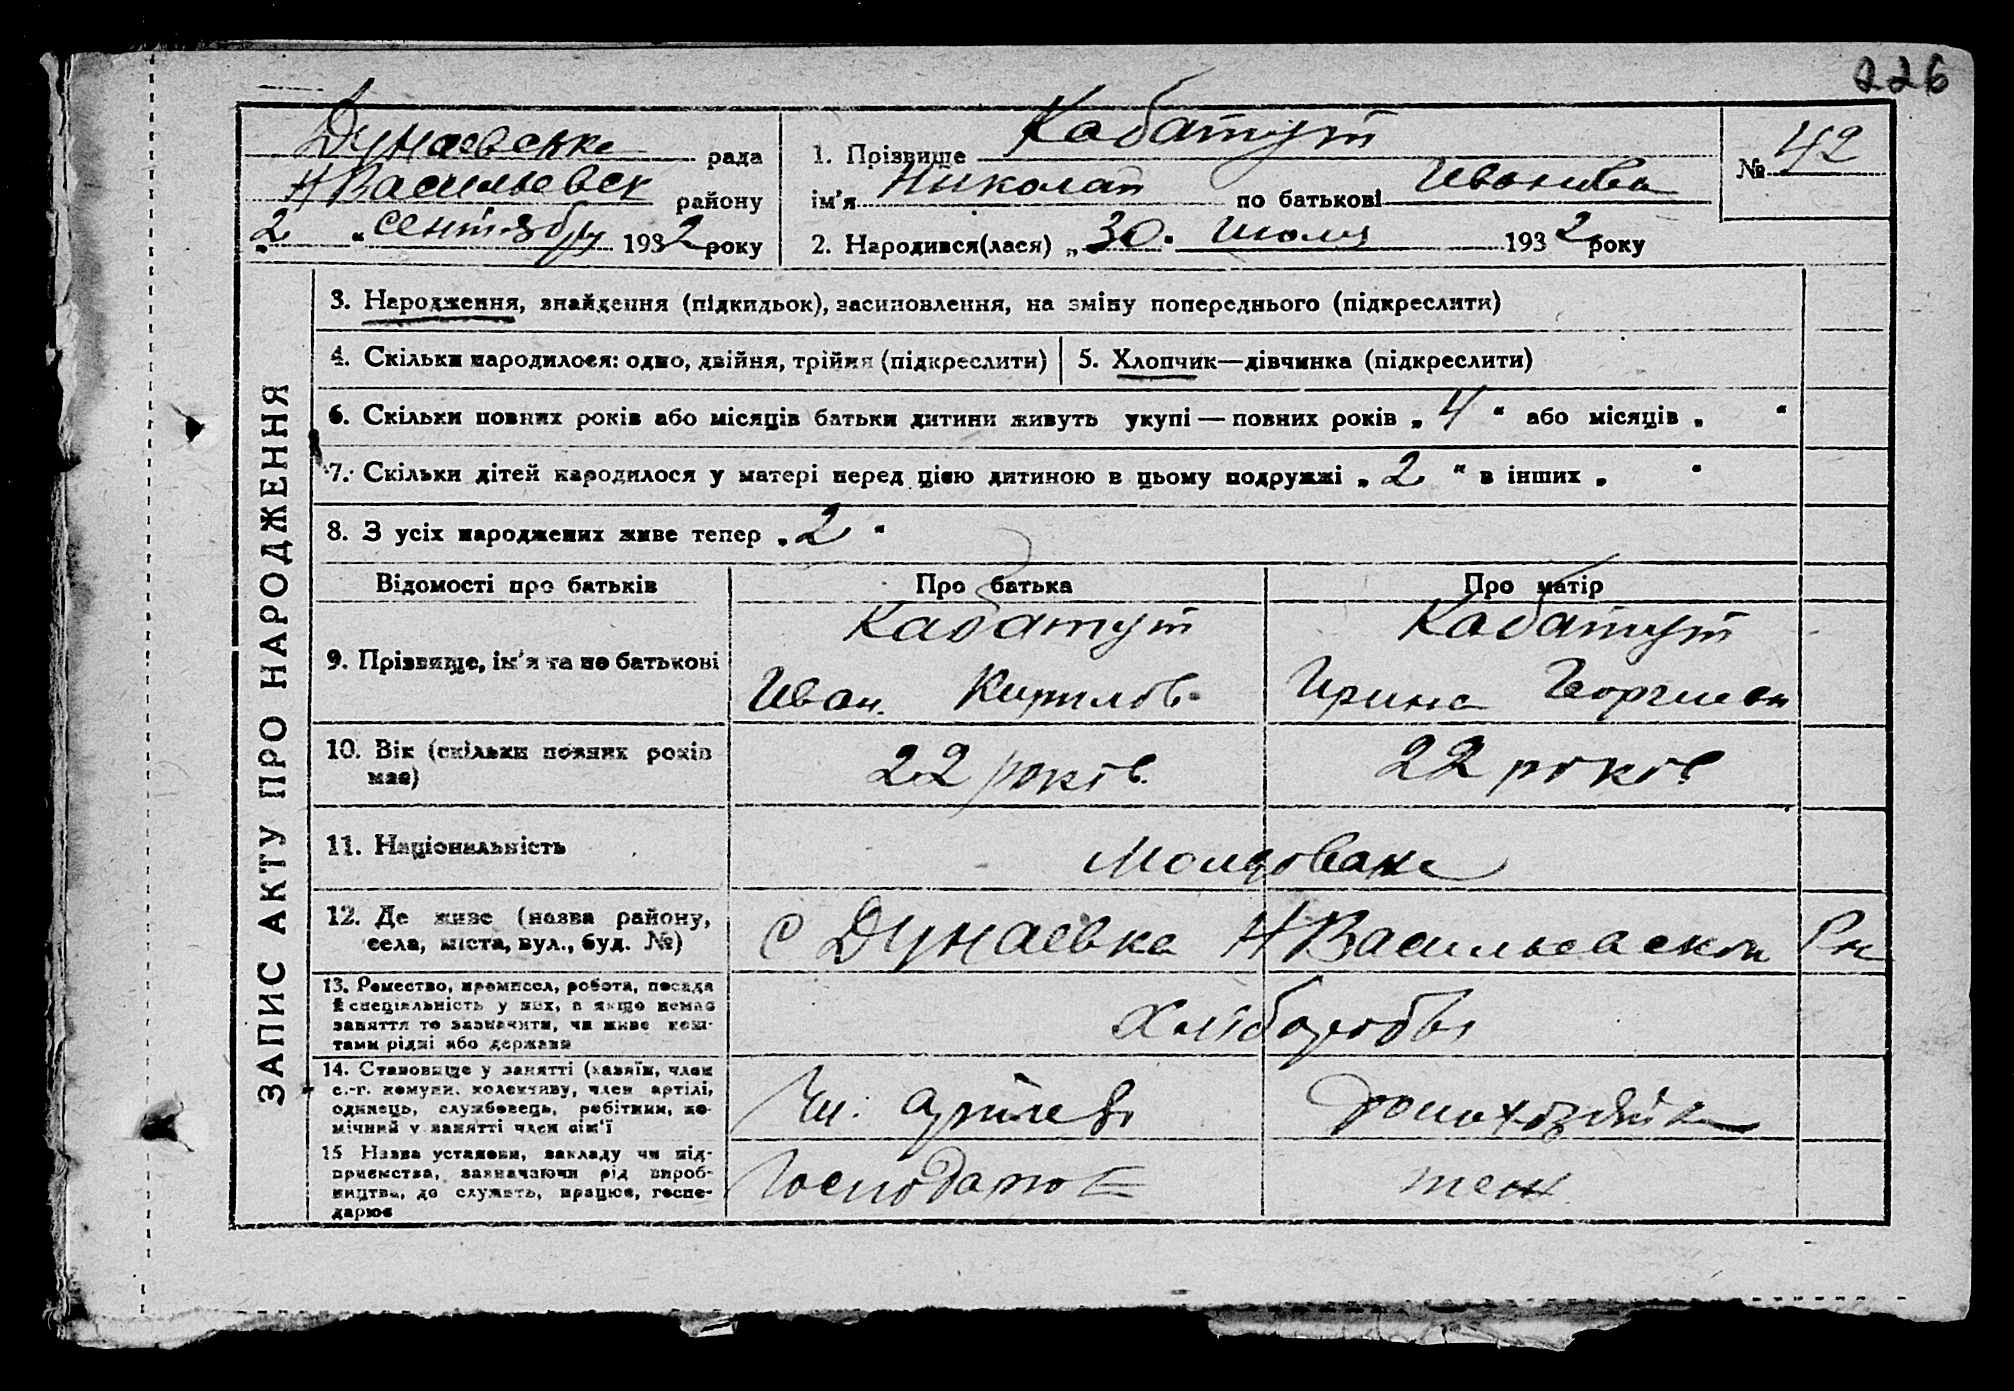 226
Дунаевське рада
Н Васильевск району
„2“ сентябру 1932 року
1. Прізвище Кабатут
ім'я Николай по батькові Иванова
2. Народився(лася) „30“ Июля 1932 року
№ 42
ЗАПИС АКТУ ПРО НАРОДЖЕННЯ
3. Народження, знайдення (підкидьок), засиновлення, на зміну попереднього (підкреслити)
4. Скільки народилося: одно, двійня, трійня (підкреслити) 5. Хлопчик—дівчинка (підкреслити)
6. Скільки повних років або місяців батьки дитини живуть укупі — повних років „4“ або місяців „ “
7. Скільки дітей народилося у матері перед цією дитиною в цьому подружжі „2“ в інших „ “
8. З усіх народжених живе тепер „2“
Відомості про батьків Про батька Про матір
9. Прізвище, ім'я та по батькові
Кабатут
Иван. Кирилов
Кабатут
Ирина Георгиев
10. Вік (скільки повних років має)
22 років.
22 років
11. Національність
Молдоване
12. Де живе (назва району, села, міста, вул., буд. №)
с Дунаевка Н Васильевском Рн
13. Ремество, промисел, робота, посада
й спеціяльність у них, а якщо немає
заняття то зазначити, чи живе кош-
тами рідні або держави
Хлібороби
14. Становище у занятті (хазяїн, член
с.-г. комуни, колективу, член артілі,
одинець, службовець, робітник, по-
мічний у занятті член сім'ї
Чл. артілеві
домохозяйка
15 Назва установи, закладу чи під-
приємства, зазначаючи рід вироб-
ництва, де служить, працює, госпо-
дарює
Господарює
теж